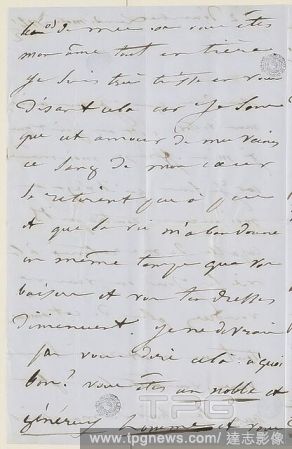 de mes sa vous êtes
mon âme tout entière.
Je suis très triste en vous
disant cela car je sens
que cet amour de mes veines
ce sang de mon cœur
se retirent peu à peu
et que la vie m'abandonne
en même temps que vos
baisers et vos tendresses
diminuent. je ne devrais
pas vous dire cela. à quoi
bon? vous êtes un noble et
généreux homme et vous
TPG
www.tpgnews.com 達志影像